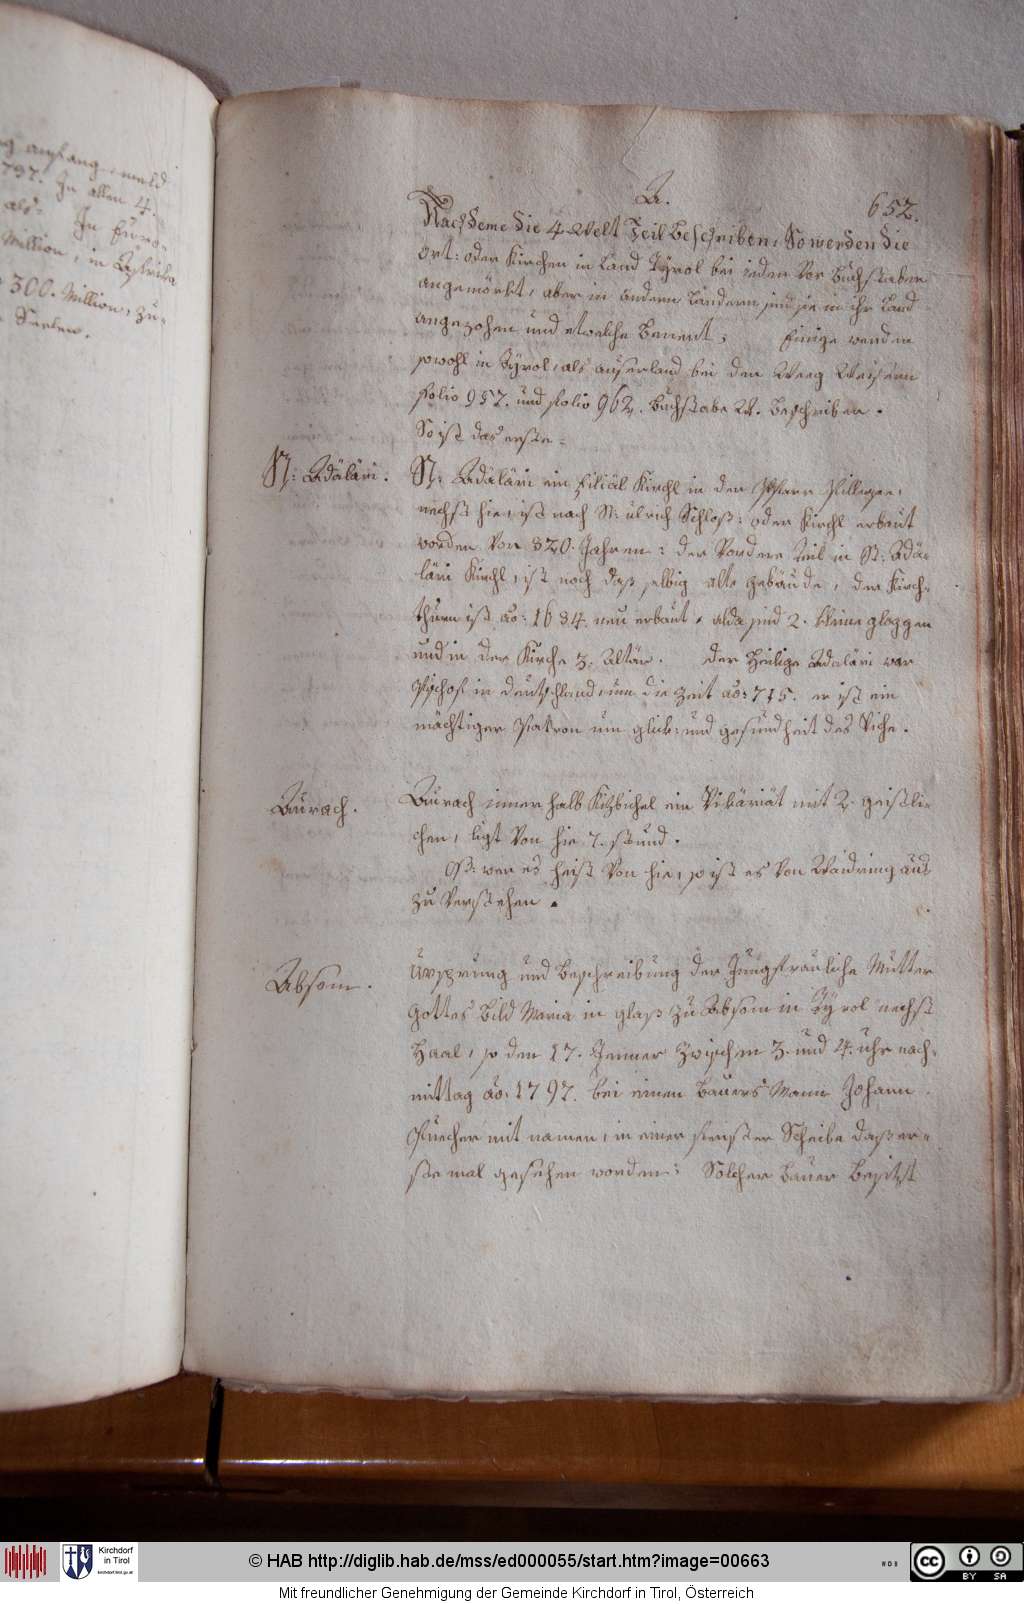 ng anfang, und
797. In allen 4.
als: In Euro-
Million, in
300. Million, zu-
Seelen.
A.
652.
Nachdeme die 4. Welt Teil beschriben, So werden die
Ort: oder Kirchen in Land Tÿrol bei ieden Vor Buchstaben
angemörkt, aber in andern Ländern sind sie in ihr Land
angezohen und etwelche benent; Einige werden
sowohl in Tÿrol, als auserland bei den Weeg Weisern
folio 957. und folio 962. Buchstabe W. beschriben.
So ist das erste:
St: Adäläri.
St: Adäläri ein Filiäl Kirchl in der Pfarr Pillersee,
nechst hie, ist nach St: ulrich Schloß: oder Kirchl erbaut
worden Von 320. Jahren: der Vordere teil in St: Adä-
läri Kirchl, ist noch daß selbig alte gebäude, der Kirch-
thurn ist ao: 1634. neu erbaut, alda sind 2. kleine gloggen
und in der Kirche 3. Altär. Der Heilige Adaläri war
Pischof in deutschland um die Zeit ao: 715. er ist ein
mächtiger Patron um glük: und gesundheit des Viche.
Aurach.
Aurach innerhalb Kitzbichel ein Vikäriät mit 2. geistli-
chen, ligt Von hie 7. stund.
wen es heist Von hie, so ist es Von Waidring aus
zu Verstehen.
Absom.
Ursprung und beschreibung der Jungfrauliche Mutter
Gottes bild Maria in glaß zu Absom in Tÿrol nechst
Haal, so den 17. Jenner zwischen 3. und 4. uhr nach-
mittag ao: 1797. bei einen bauers Mann Johann
Puecher mit namen, in einer fenster Scheibe daß er-
ste mal gesehen worden: Solcher bauer besitzt
Kirchdorf
in Tirol
kirchdorf.tirol.gv.at
© HAB http://diglib.hab.de/mss/ed000055/start.htm?image=00663
WDB
cc BY SA
Mit freundlicher Genehmigung der Gemeinde Kirchdorf in Tirol, Österreich